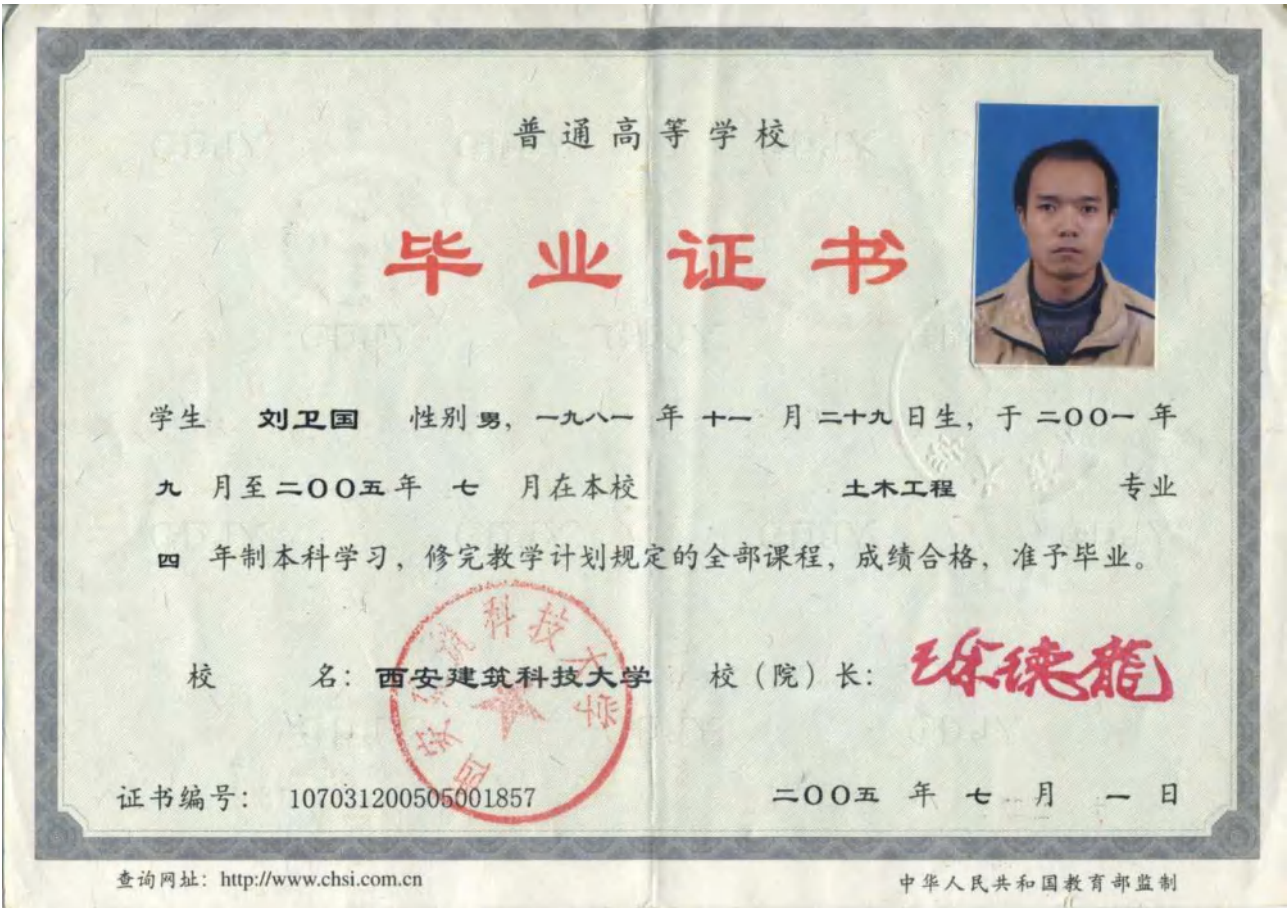 普通高等学校
毕业证书
学生 刘卫国 性别 男，一九八一 年 十一 月 二十九 日生，于 二〇〇一 年
九 月至 二〇〇五 年 七 月在本校 土木工程 专业
四 年制本科学习，修完教学计划规定的全部课程，成绩合格，准予毕业。
校 名：西安建筑科技大学 校（院）长：徐德龙
西安建筑科技大学
证书编号：107031200505001857 二〇〇五 年 七 月 一 日
查询网址：http://www.chsi.com.cn 中华人民共和国教育部监制